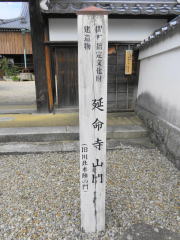 指定文化財
建造物
延命寺山門
（旧川北本陣の門）